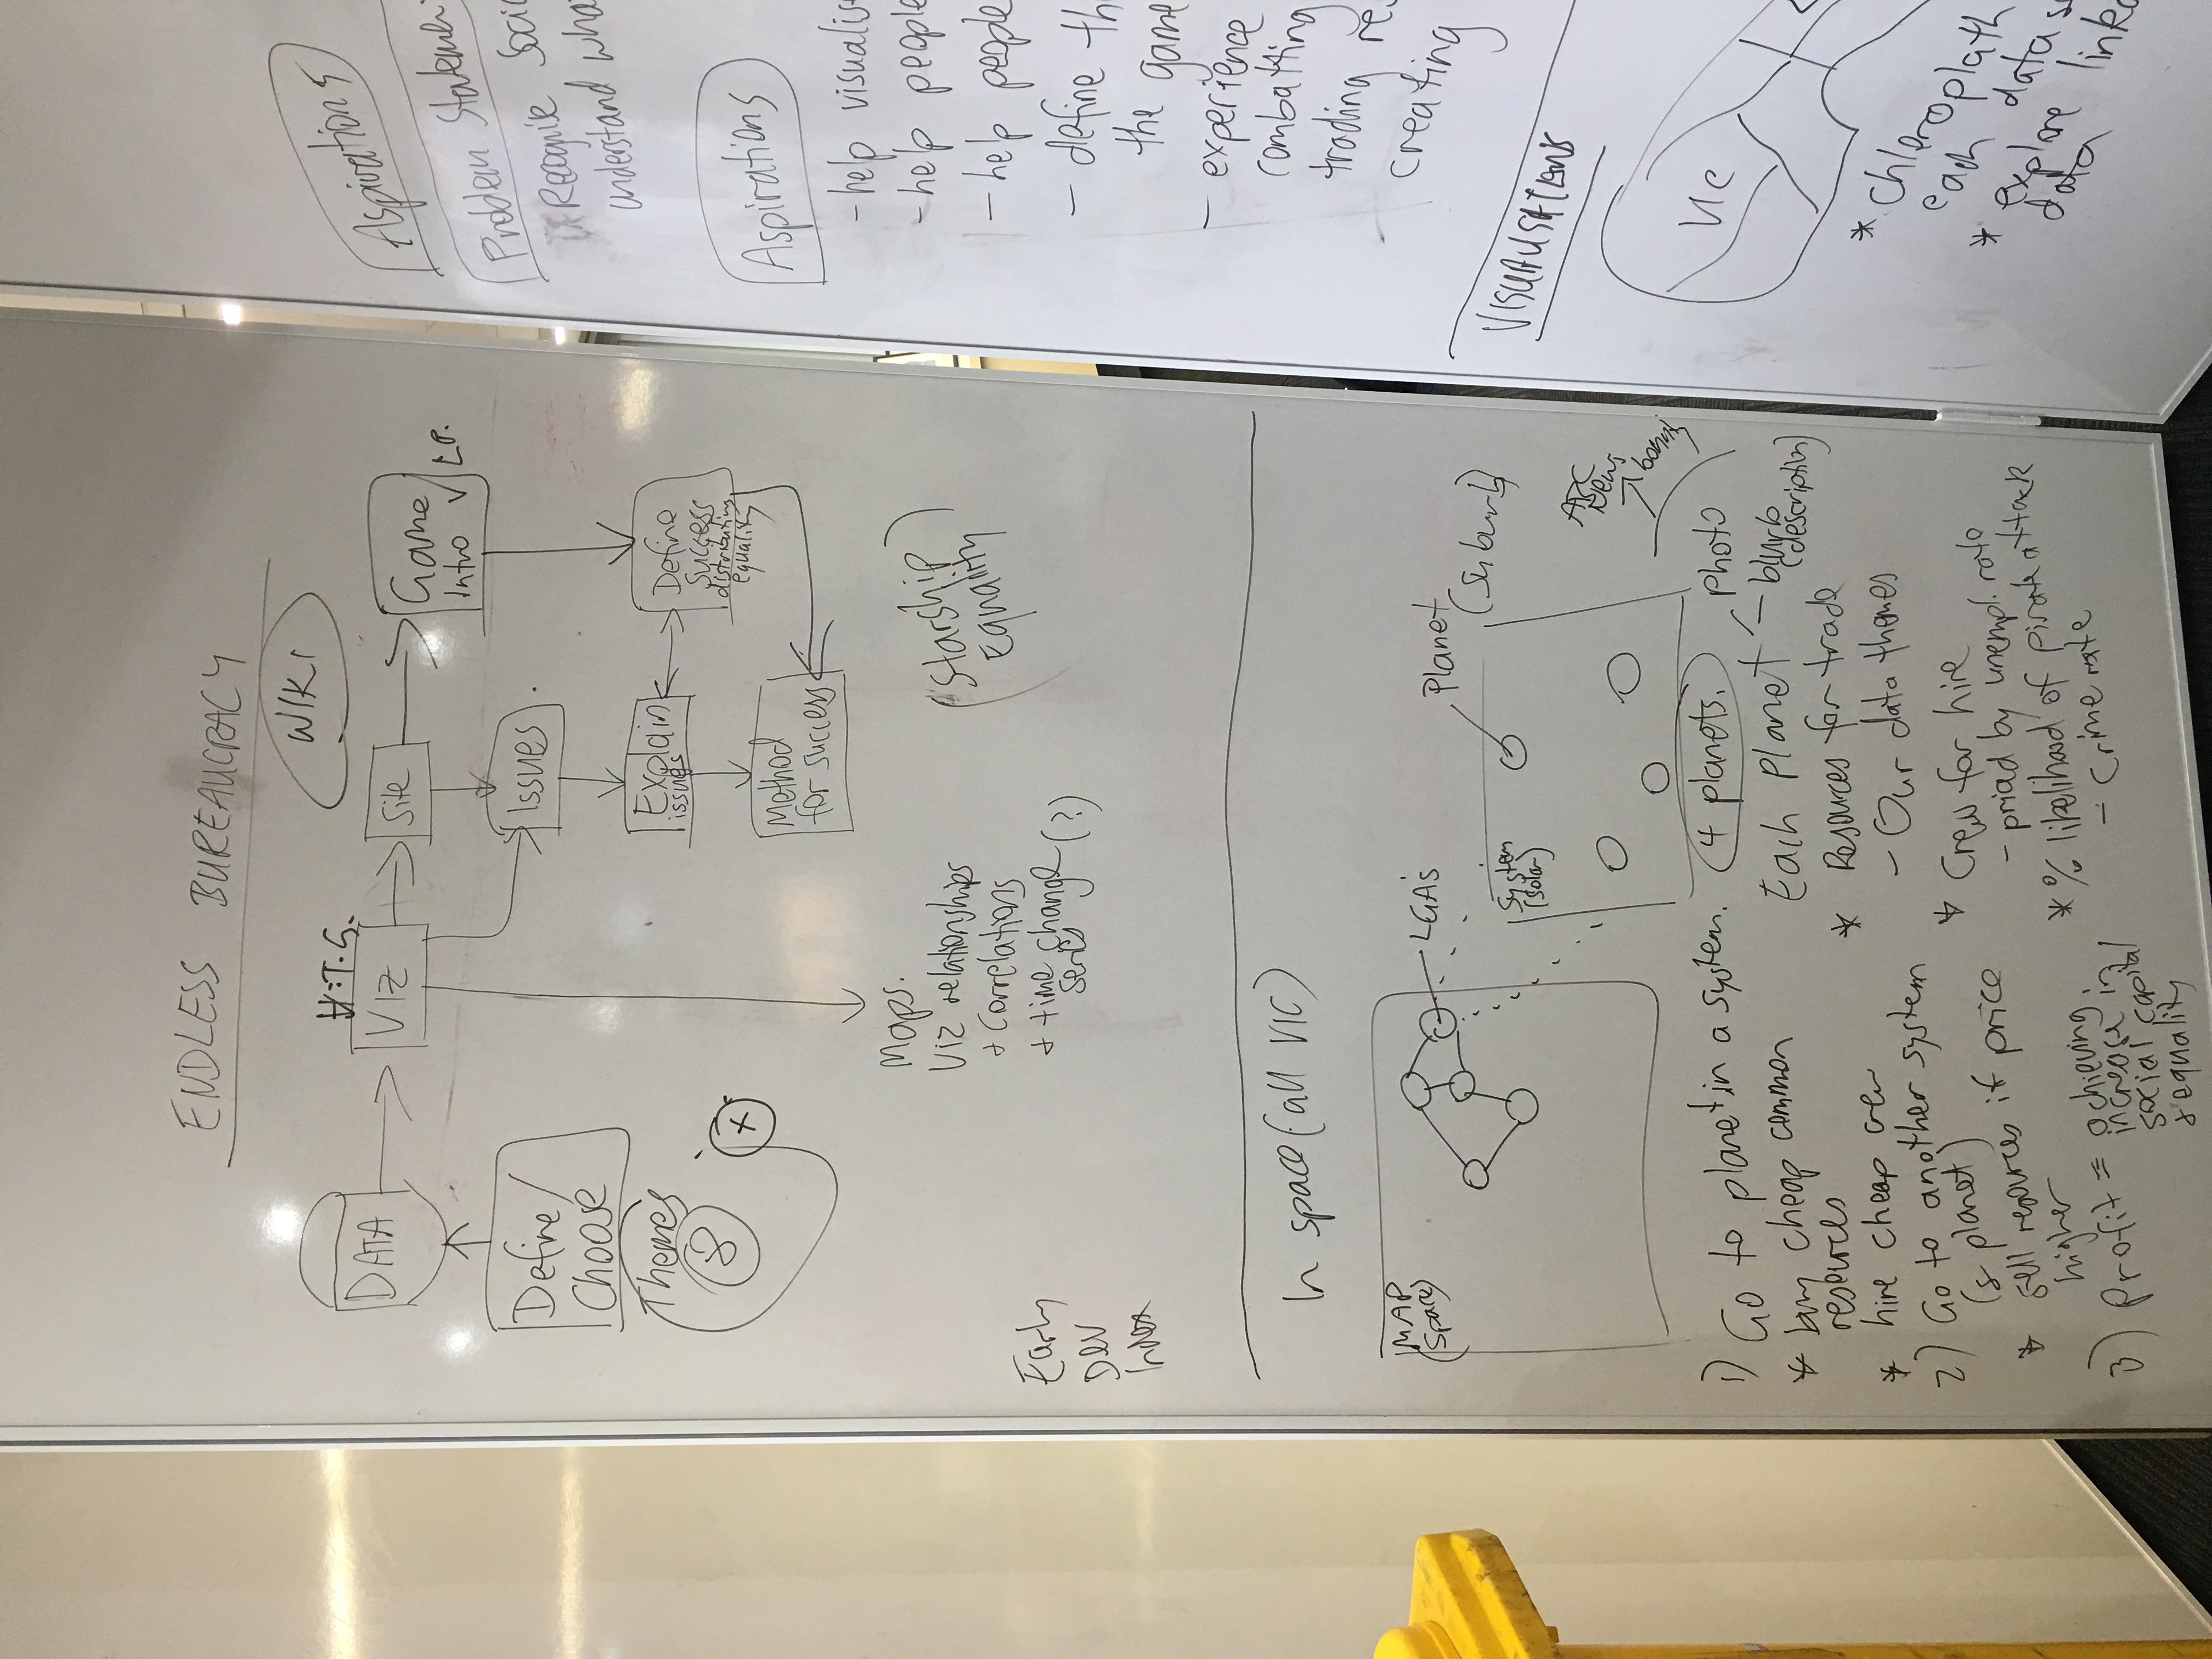 ENDLESS BUREAUCRACY
WIKI
DATA
H.T.G.
VIZ
Site
Game
Intro
Define/
Choose
Themes
8
+
Issues
Explain
issues
Define
Success
distributing
equality
Method
for success
Maps.
Viz relationships
+ Correlations
+ time change (?)
series
(Starship
Equality)
Early
Dev
Index
In space (all VIC)
MAP
(Space)
LGA's
Planet
(Suburb)
System
(solar)
ABC
News
bounty
1) Go to planet in a system.
* buy cheap common
resources
* hire cheap crew
2) Go to another system
(& planet)
* sell resources if price
higher
3) Profit = achieving
increase in
social capital
+ equality
4 planets.
Each Planet
- photo
- blurb
(description)
* Resources for trade
- Our data themes
* Crew for hire
- priced by unempl. rate
* % likelihood of pirate attack
- Crime rate
Aspirations
Problem Statemen
Recognise Soci
understand wha
Aspirations
- help visualis
- help people
- help people
- define th
the game
- experience
combatting
trading res
creating
VISUALISATIONS
VIC
* Chloroplath
each data s
* explore link
data